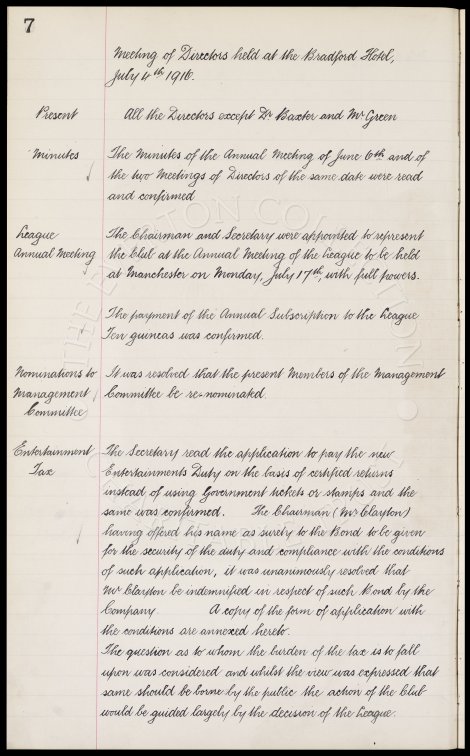 7
Meeting of Directors held at the Bradford Hotel,
July 4th 1916.
Present All the Directors except Dr Baxter and Mr Green
Minutes The Minutes of the Annual Meeting of June 6th and of
the two Meetings of Directors of the same date were read
and confirmed
League The Chairman and Secretary were appointed to represent
Annual Meeting the Club at the Annual Meeting of the League to be held
at Manchester on Monday, July 17th, with full powers.
The payment of the Annual Subscription to the League
Ten guineas was confirmed.
Nominations to It was resolved that the present Members of the Management
Management Committee be re-nominated.
Committee
Entertainment The Secretary read the application to pay the new
Tax Entertainments Duty on the basis of certified returns
instead of using Government tickets or stamps and the
same was confirmed. The Chairman (Mr Clayton)
having offered his name as surety to the Bond to be given
for the security of the duty and compliance with the conditions
of such application, it was unanimously resolved that
Mr Clayton be indemnified in respect of such Bond by the
Company. A copy of the form of application with
the conditions are annexed hereto.
The question as to whom the burden of the tax is to fall
upon was considered and whilst the view was expressed that
same should be borne by the public the action of the Club
would be guided largely by the decision of the League.